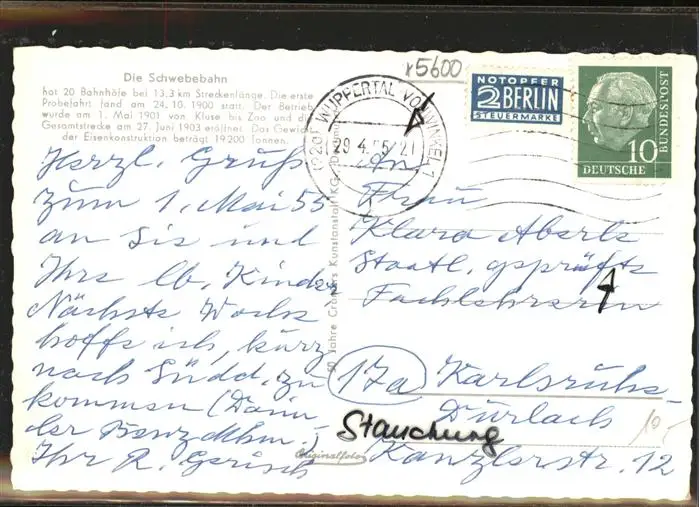 Die Schwebebahn
hat 20 Bahnhöfe bei 13,3 km Streckenlänge. Die erste
Probefahrt fand am 24. 10. 1900 statt. Der Betrieb
wurde am 1. Mai 1901 von Kluse bis Zoo und die
Gesamtstrecke am 27. Juni 1903 eröffnet. Das Gewicht
der Eisenkonstruktion beträgt 19200 Tonnen.
Herzl. Gruß
zum 1. Mai 55
an Sie und
Ihre lb. Kinder
Nächste Woche
hoffe ich, kurz
nach Südd. zu
kommen (Daim
ler Benz
Ihr R. Gerisch
50 Jahre Cramers Kunstanstalt KG.
Originalfoto
x5600
(22a) WUPPERTAL-VOHWINKEL 1
29.4.55.21
NOTOPFER
2 BERLIN
STEUERMARKE
10
DEUTSCHE
BUNDESPOST
An
Frau
Klara Aberle
Staatl. geprüfte
Fachlehrerin
17a Karlsruhe-
Durlach
Kanzlerstr. 12
Stauchung
10,-